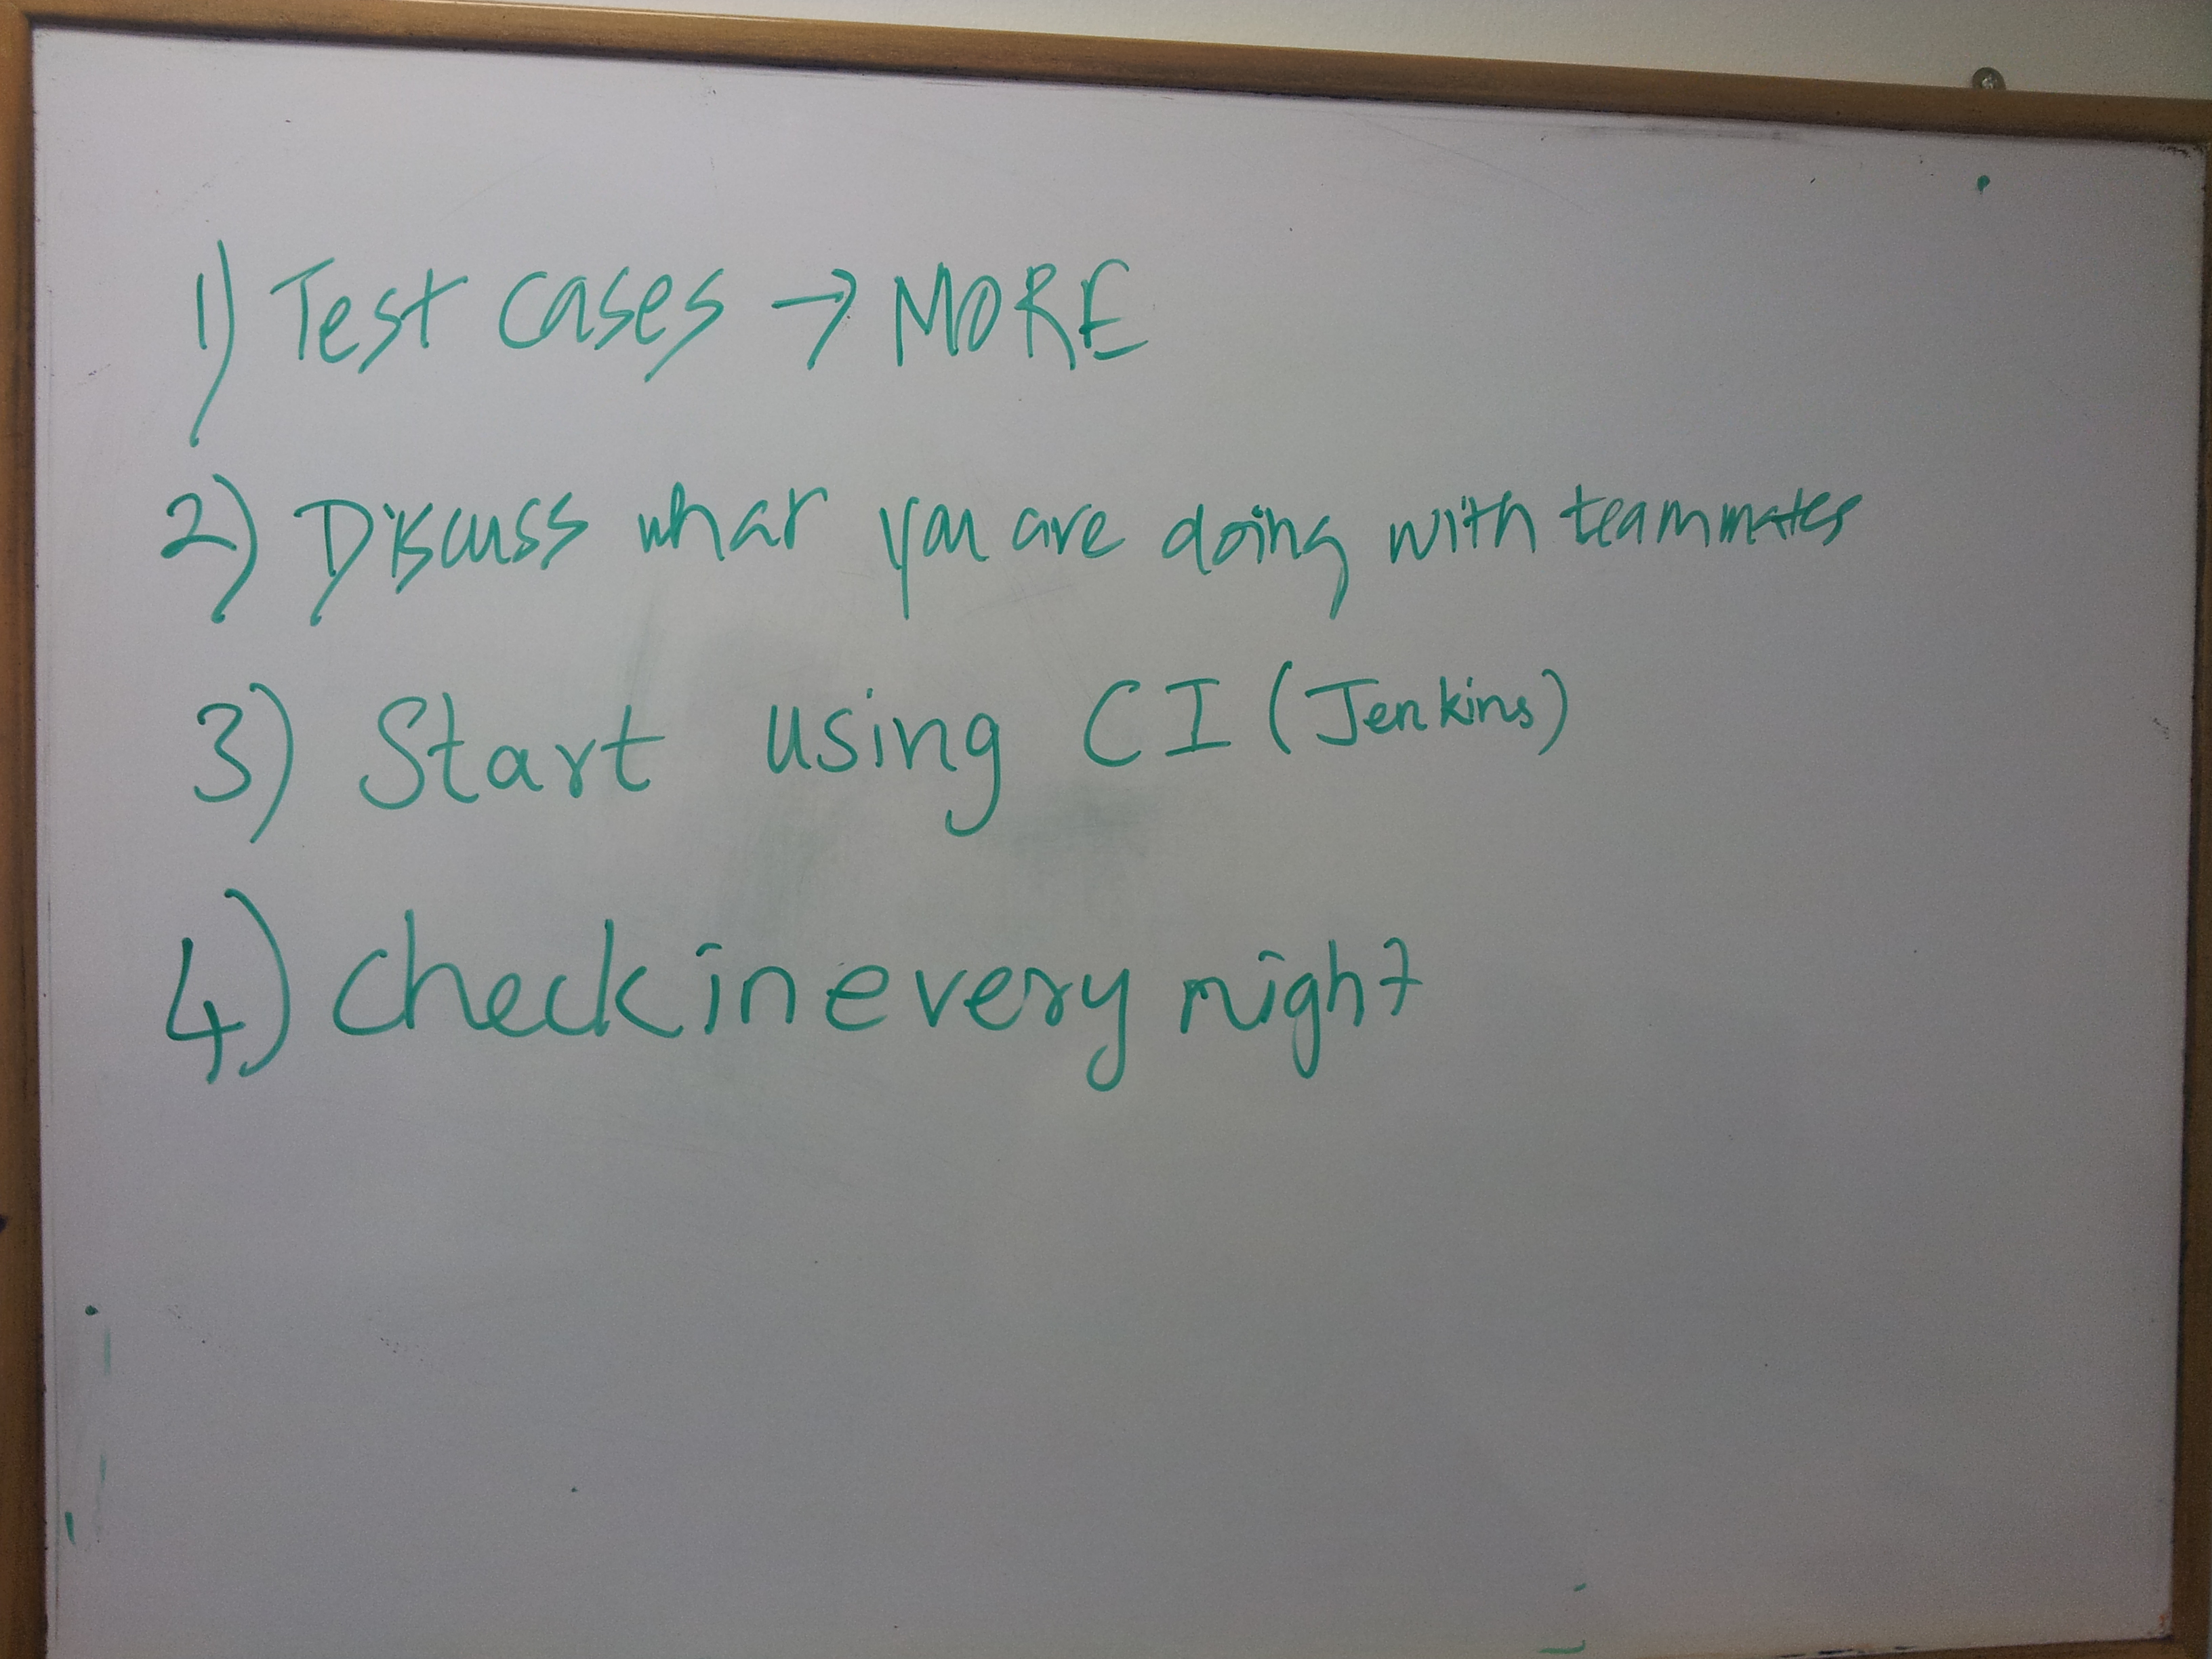 1) Test cases → MORE
2) Discuss what you are doing with teammates
3) Start using CI (Jenkins)
4) Check in every night